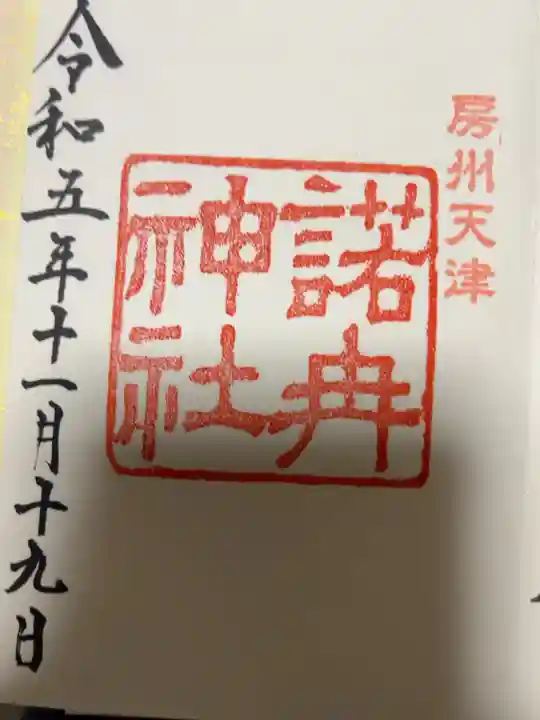 房州天津
諾冉
神社
令和五年十一月十九日